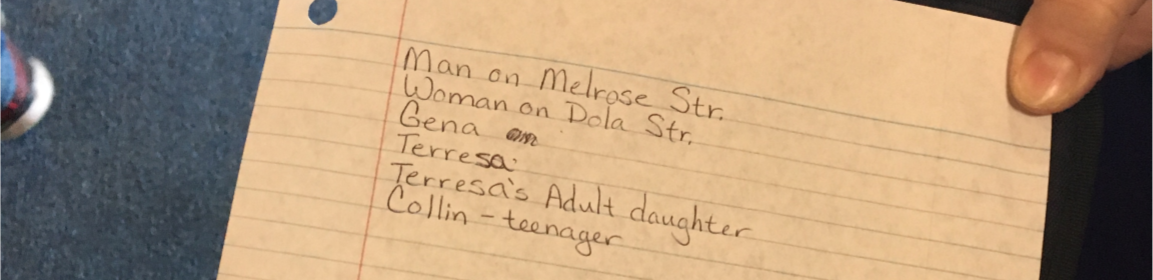 Man on Melrose Str.
Woman on Dola Str.
Gena
Terresa
Terresa's Adult daughter
Collin - teenager